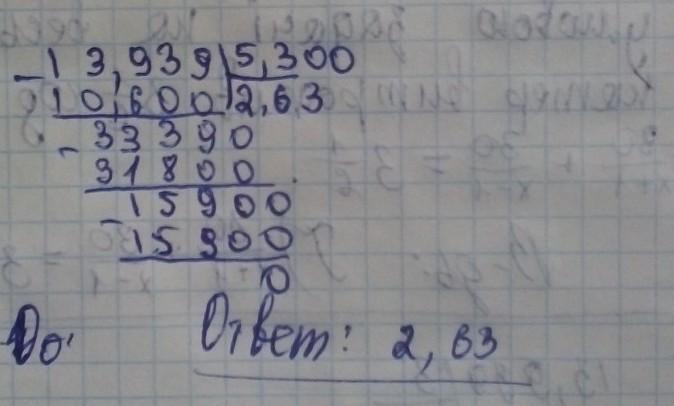 -13,939|5,300
10,600|2,63
-33390
31800
-15900
15900
0
До
Ответ: 2,63